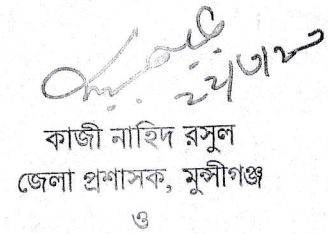 কাজী নাহিদ রসুল
জেলা প্রশাসক, মুন্সীগঞ্জ
ও